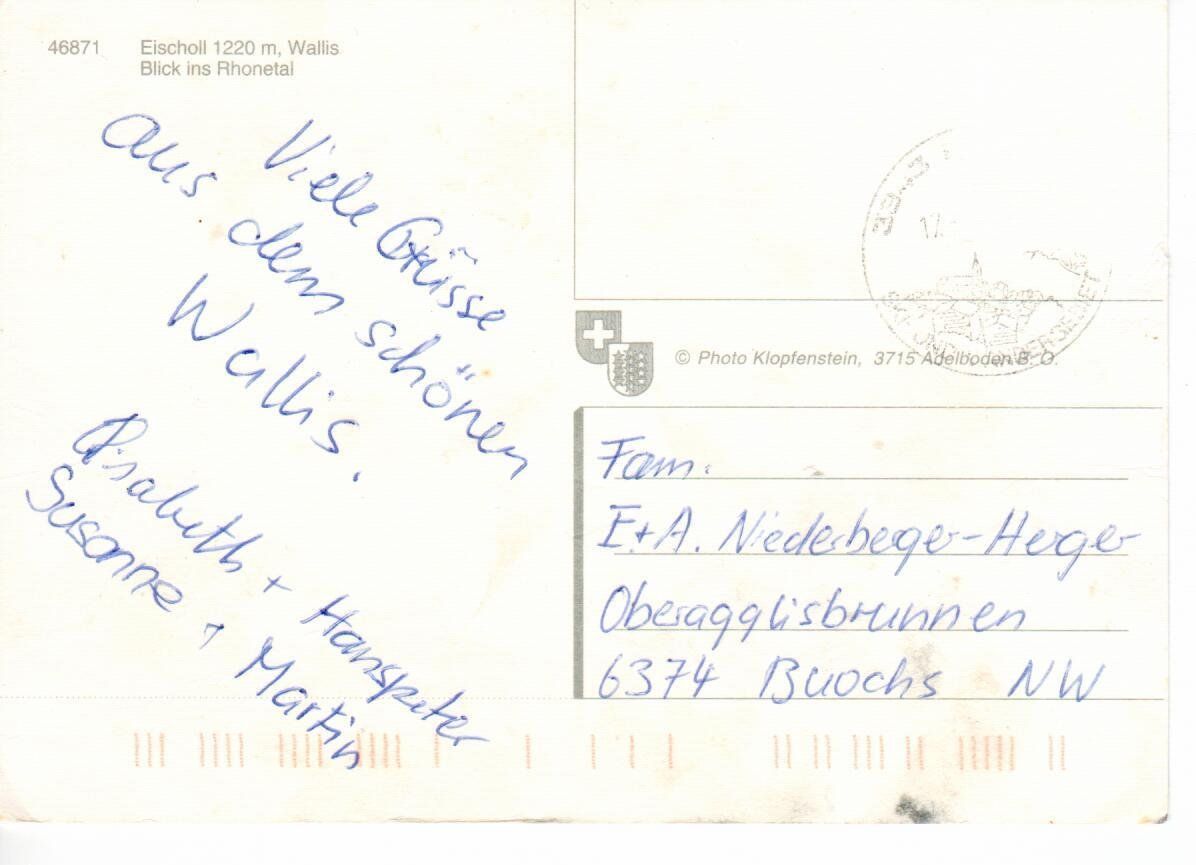 46871 Eischoll 1220 m, Wallis
Blick ins Rhonetal
Viele Grüsse
aus dem schönen
Wallis.
Elisabeth + Hanspeter
Susanne + Martin
© Photo Klopfenstein, 3715 Adelboden B. O.
Fam.
E+A. Niederberger-Herger
Oberagglisbrunnen
6374 Buochs NW